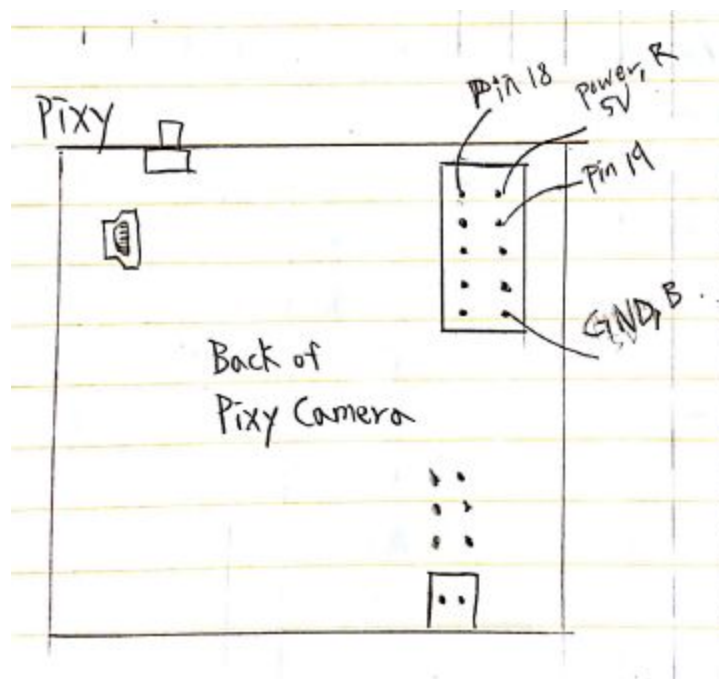 Pixy
Pin 18
Power, R
5V
Pin 19
GND, B
Back of
Pixy Camera